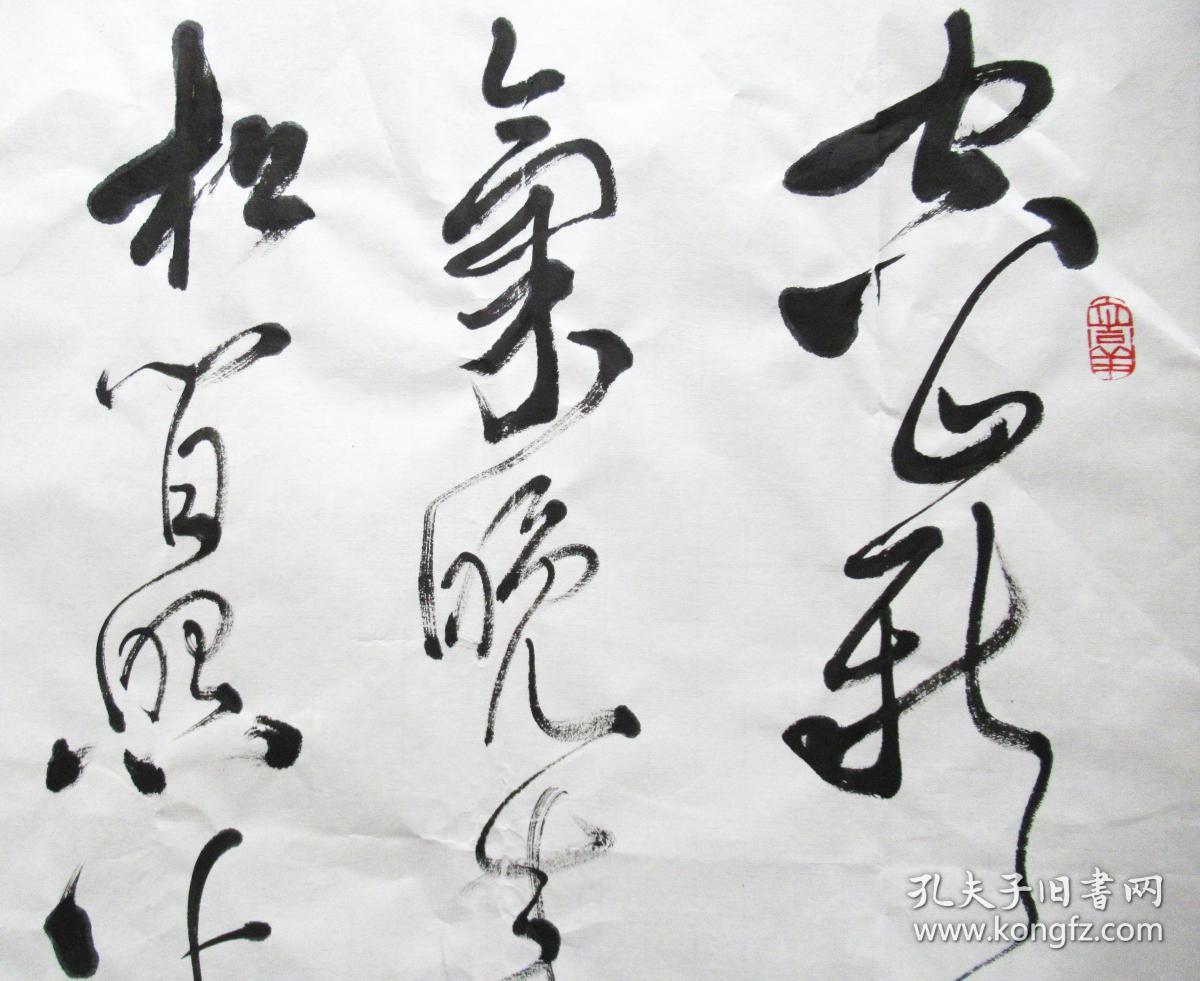 空山新
氣晚来
松間照
孔夫子旧書网
www.kongfz.com